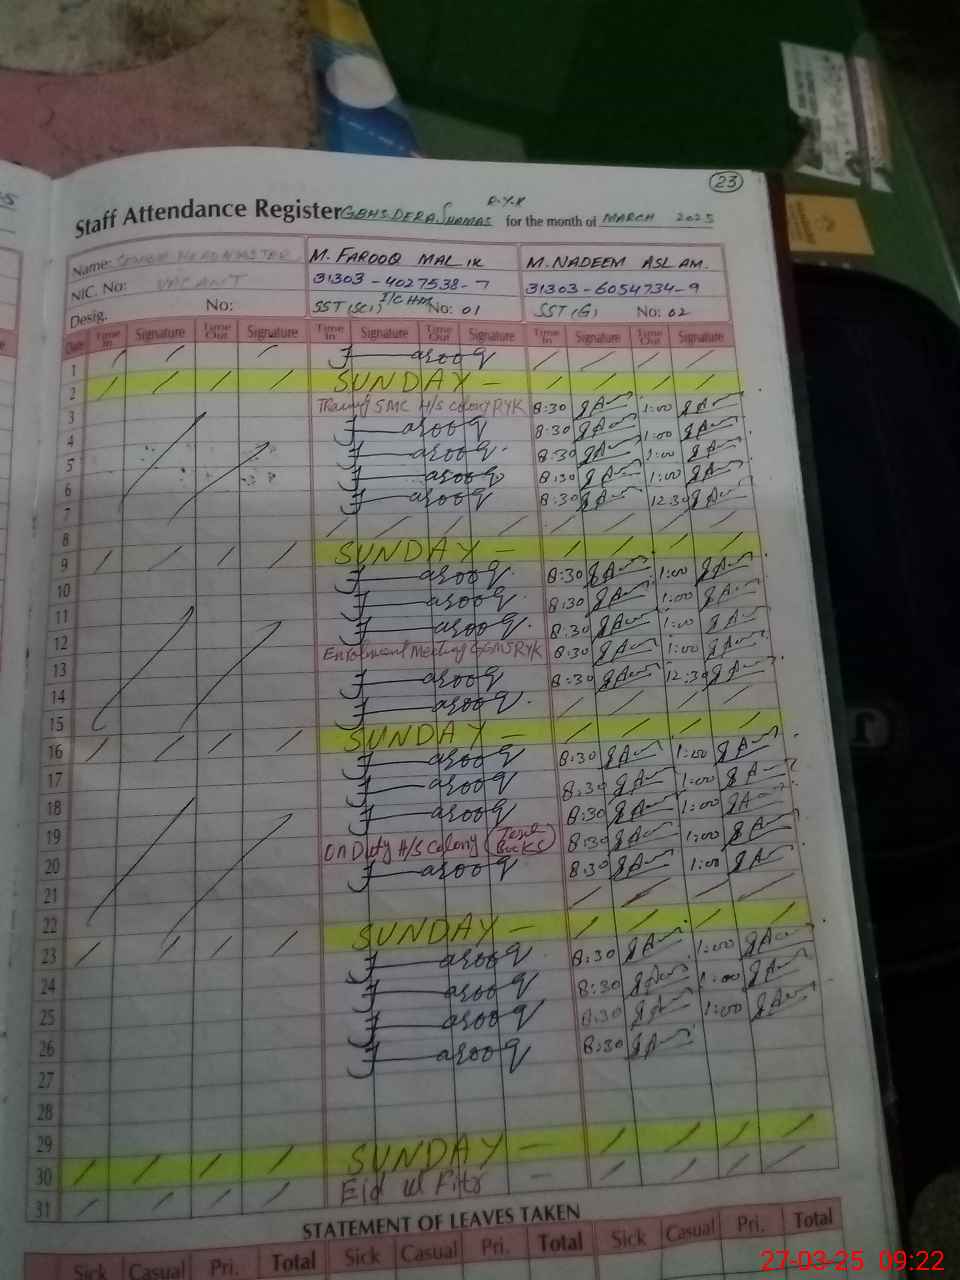 23
R.Y.K
Staff Attendance Register GBHS DERA SHAMAS for the month of MARCH 2025
Name: SENIOR HEADMASTER M. FAROOQ MALIK M. NADEEM ASLAM.
NIC. No: VACANT 31303-4027538-7 31303-6054734-9
Desig. No: SST(Sci) I/C HM No: 01 SST(G) No: 02
Date Time In Signature Time Out Signature Time In Signature Time Out Signature Time In Signature Time Out Signature
1 Farooq
2 SUNDAY -
3 SMC H/S Colony RYK 8:30 1:00
4 Farooq 8:30 1:00
5 Farooq 8:30 1:00
6 Farooq 8:30 1:00
7 Farooq 8:30 12:30
8
9 SUNDAY -
10 Farooq 8:30 1:00
11 Farooq 8:30 1:00
12 Farooq 8:30 1:00
13 Enrolment Meeting RYK 8:30 1:00
14 Farooq 8:30 12:30
15 Farooq
16 SUNDAY -
17 Farooq 8:30 1:00
18 Farooq 8:30 1:00
19 Farooq 8:30 1:00
20 On Duty H/S Colony (Books) 8:30 1:00
21 Farooq 8:30 1:00
22
23 SUNDAY -
24 Farooq 8:30 1:00
25 Farooq 8:30 1:00
26 Farooq 8:30 1:00
27 Farooq 8:30
28
29
30 SUNDAY -
31 Eid ul Fitr -
STATEMENT OF LEAVES TAKEN
Sick Casual Pri. Total Sick Casual Pri. Total Sick Casual Pri. Total
27-03-25 09:22